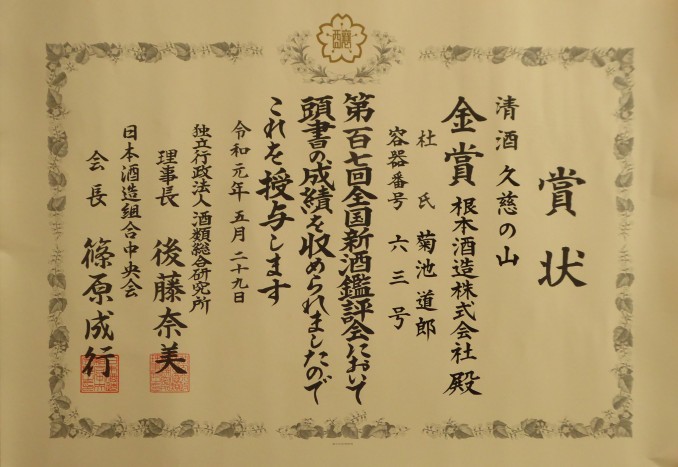 賞状
清酒 久慈の山
金賞 根本酒造株式会社 殿
杜氏 菊池道郎
容器番号 六三号
第百七回全国新酒鑑評会において
頭書の成績を収められましたので
これを授与します
令和元年五月二十九日
独立行政法人 酒類総合研究所
理事長 後藤奈美
日本酒造組合中央会
会長 篠原成行